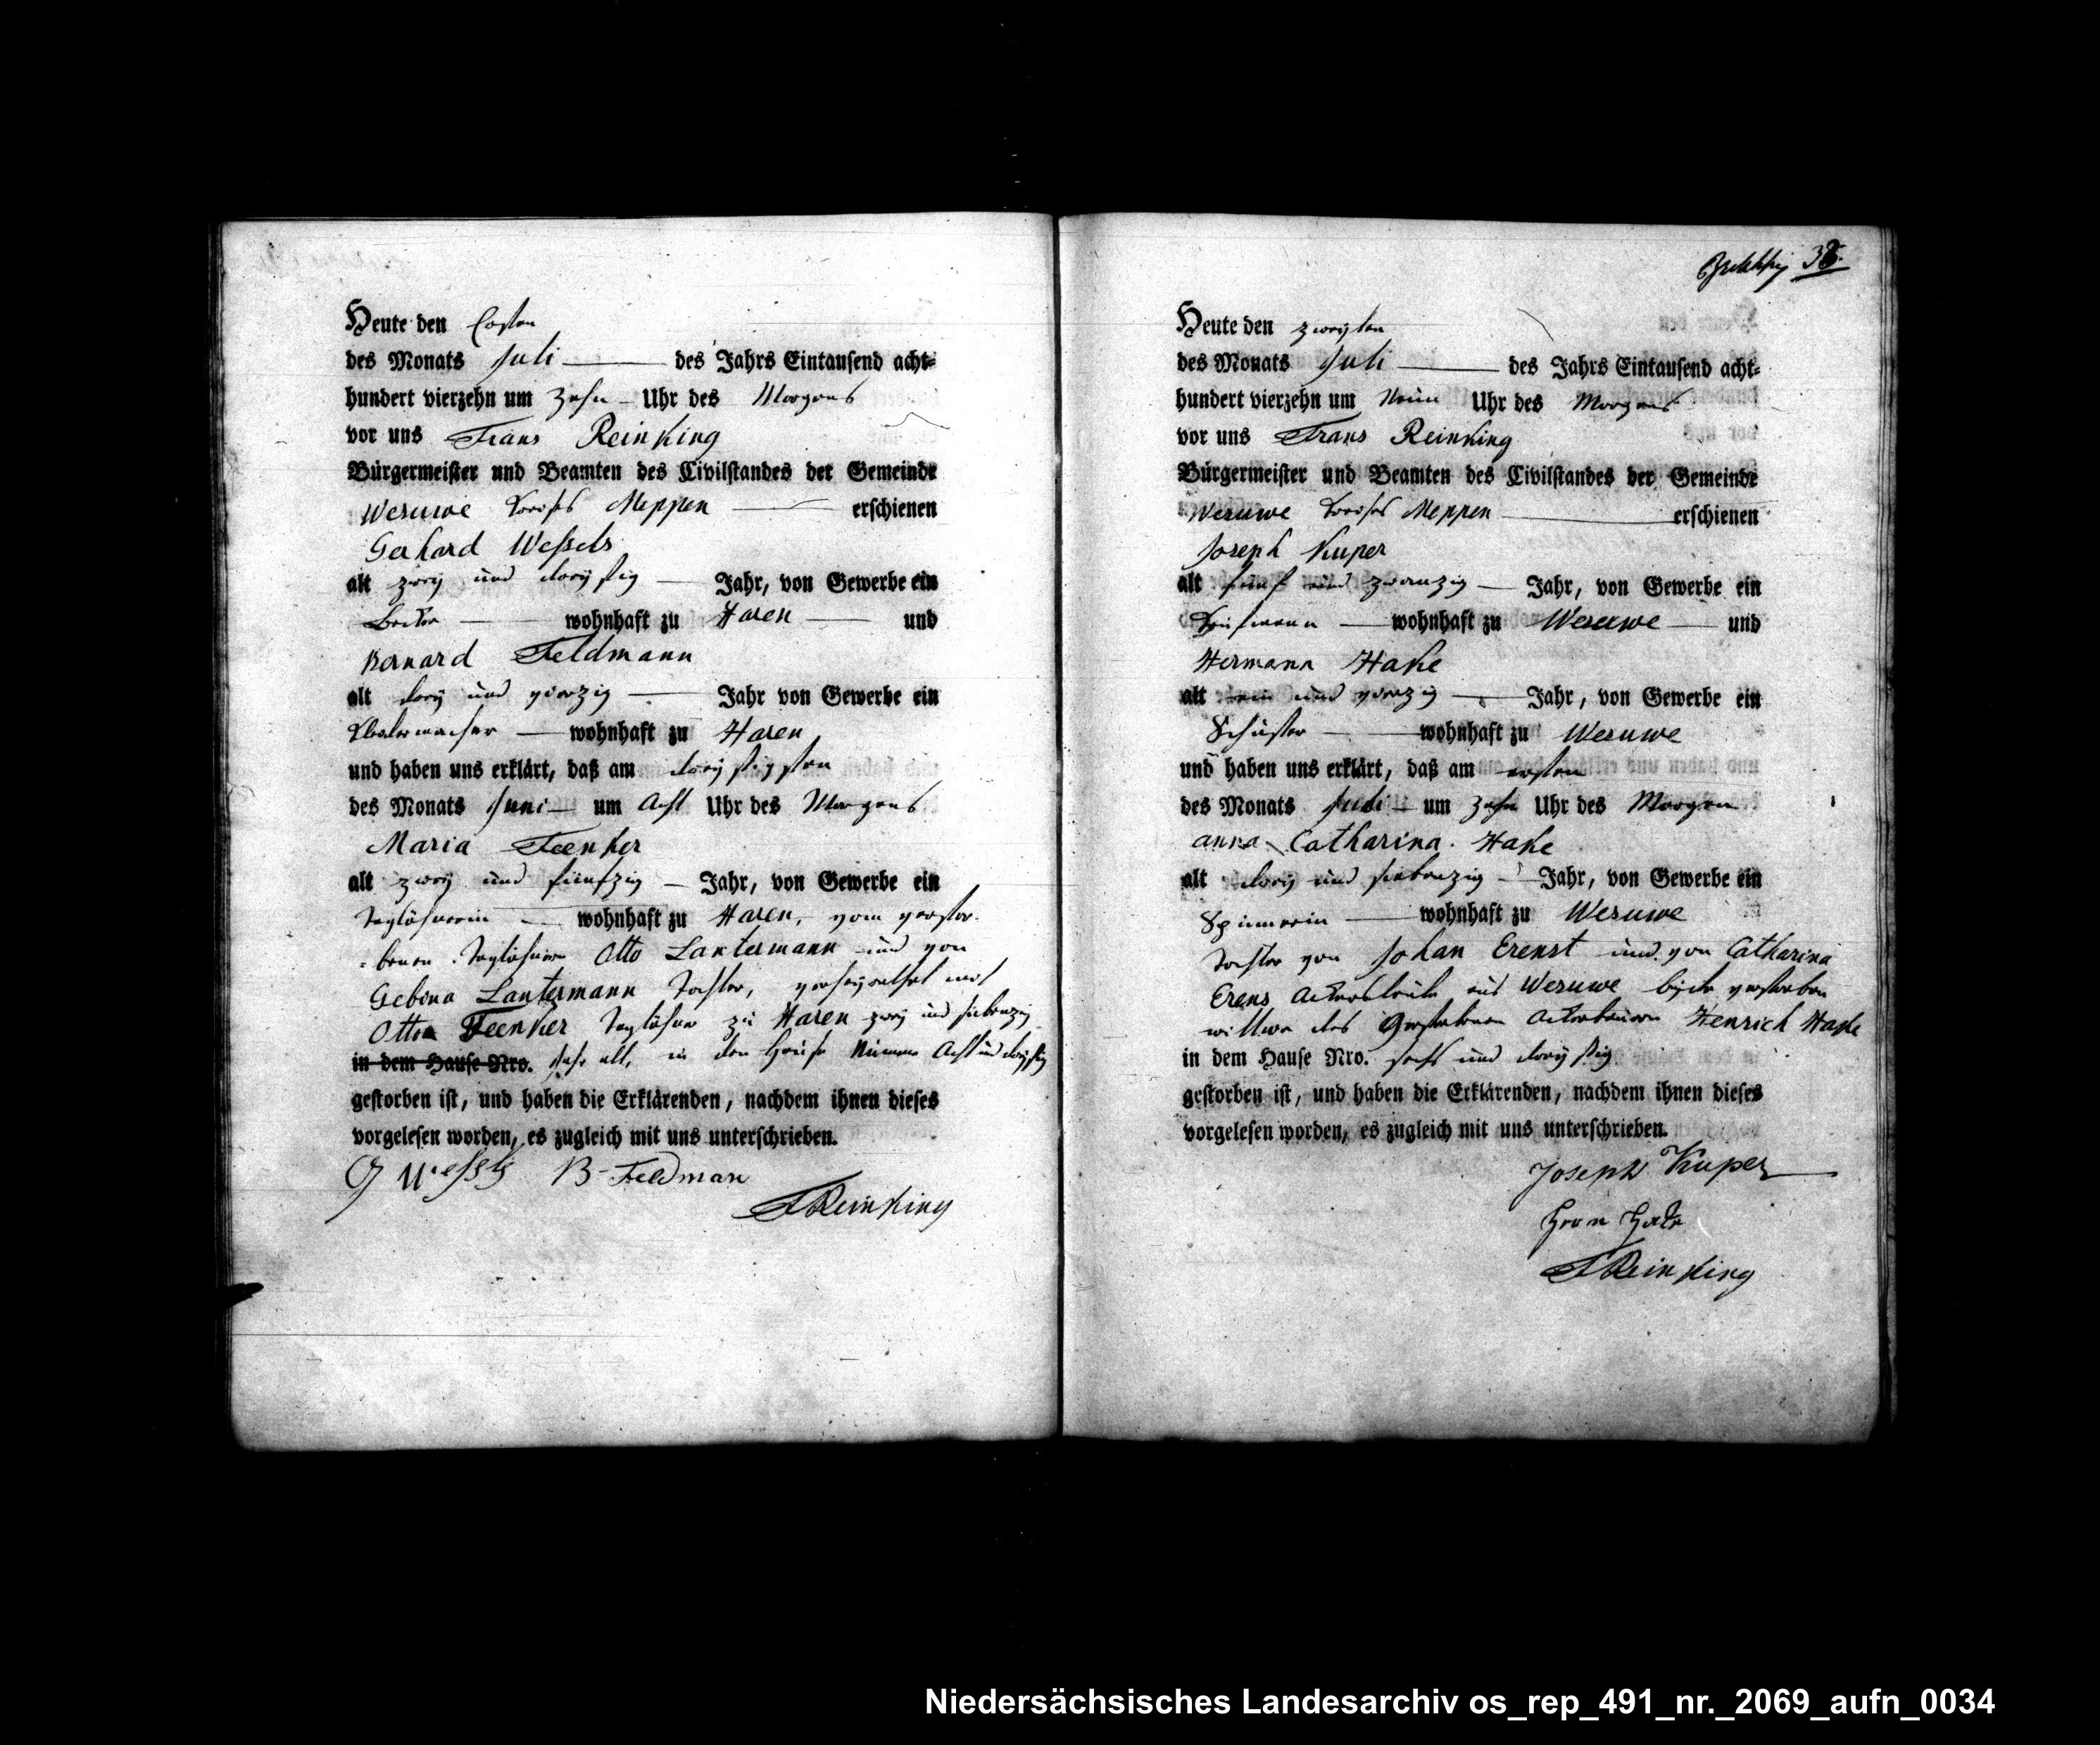 Heute den Ersten
des Monats Juli des Jahrs Eintausend acht-
hundert vierzehn um Zehn Uhr des Morgens
vor uns Frans Reinking
Bürgermeister und Beamten des Civilstandes der Gemeinde
Wesuwe Kreises Meppen erschienen
Gerhard Weſsels
alt zwey und dreyßig Jahr, von Gewerbe ein
Becker wohnhaft zu Haren und
Bernard Feldmann
alt drey und vierzig Jahr von Gewerbe ein
wohnhaft zu Haren
und haben uns erklärt, daß am dreyßigsten
des Monats Juni um Acht Uhr des Morgens
Maria Feenker
alt zwey und fünfzig Jahr, von Gewerbe ein
Taglöhnerin wohnhaft zu Haren, vom verstor-
-benen Taglöhner Otto Lantermann und von
Gebina Lantermann Tochter, verheyrathet mit
Otto Feenker Taglöhner zu Haren zwey und siebenzig
in dem Hause Nro. Jahr alt, in dem Hause Nummer Acht und dreyßig
gestorben ist, und haben die Erklärenden, nachdem ihnen dieses
vorgelesen worden, es zugleich mit uns unterschrieben.
G Weſsels B Feldman
F Reinking
38.
Heute den zweyten
des Monats Juli des Jahrs Eintausend acht-
hundert vierzehn um Neun Uhr des Morgens
vor uns Frans Reinking
Bürgermeister und Beamten des Civilstandes der Gemeinde
Wesuwe Kreises Meppen erschienen
Joseph Kuper
alt fünf und zwanzig Jahr, von Gewerbe ein
Kaufmann wohnhaft zu Wesuwe und
Hermann Hake
alt ein und vierzig Jahr, von Gewerbe ein
Schuster wohnhaft zu Wesuwe
und haben uns erklärt, daß am ersten
des Monats Juli um Zehn Uhr des Morgens
Anna Catharina Hake
alt drey und siebenzig Jahr, von Gewerbe ein
Spinnerin wohnhaft zu Wesuwe
Tochter von Johan Erenst und von Catharina
Erens Ackersleute aus Wesuwe beyde verstorben
wittwe des verstorbenen Ackerbauern Henrich Hake
in dem Hause Nro. sechs und dreyßig
gestorben ist, und haben die Erklärenden, nachdem ihnen dieses
vorgelesen worden, es zugleich mit uns unterschrieben.
Joseph Kuper
Herm Hake
F Reinking
Niedersächsisches Landesarchiv os_rep_491_nr._2069_aufn_0034